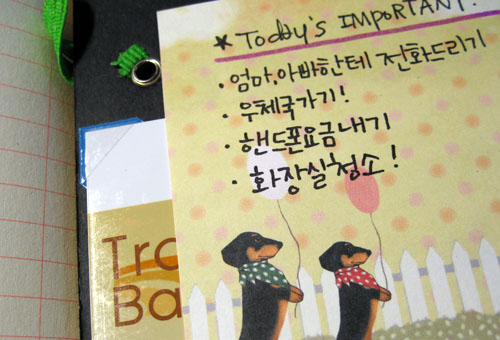 ★ Today's IMPORTANT!
· 엄마,아빠한테 전화드리기
· 우체국가기!
· 핸드폰요금내기
· 화장실청소!